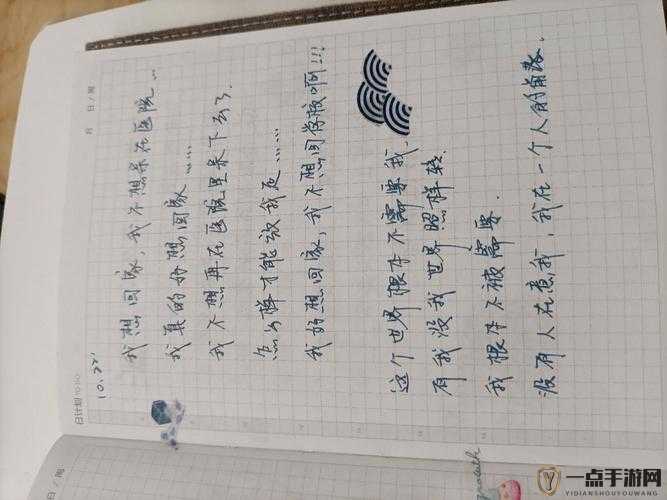 日计划
月 日/周
10.22'
我想回家，我不想呆在医院……
我真的好想回家……
我不想再在医院里呆下去了.
怎么样才能放我走……
我好想回家，我不想回学校啊!!!
这个世界根本不需要我
有我没我世界照样转.
我根本不被需要.
没有人在意我，我在一个人的角落.
日/周
一点手游网
YIDIANSHOUYOUWANG